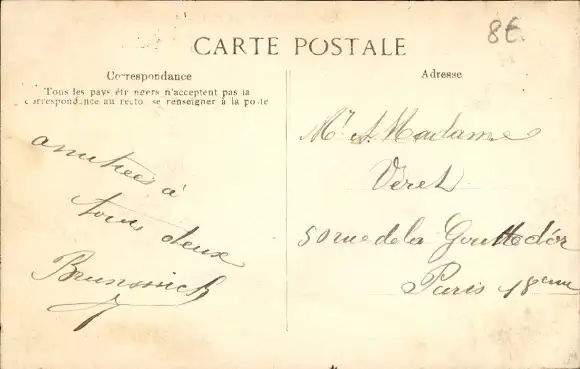 8€
CARTE POSTALE
Correspondance
Tous les pays étrangers n'acceptent pas la
correspondance au recto se renseigner à la poste
amitiées à
tous deux
Brunswick
Adresse
Mr et Madame
Veret
50 rue de la Goutte d'or
Paris 18eme